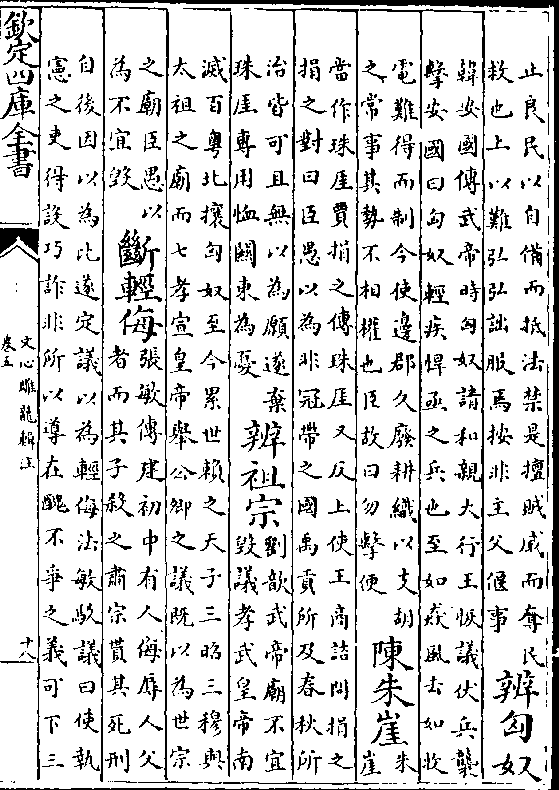 止良民以自備而抵法禁是擅賊威而奪民
救也上以難弘弘詘服焉按非主父偃事
辨匈奴
韓安國傳武帝時匈奴請和親大行王恢議伏兵襲
擊安國曰匈奴輕疾悍亟之兵也至如猋風去如收
電難得而制今使邊郡久廢耕織以支胡
之常事其勢不相權也臣故曰勿擊便
陳朱崖
朱
崖
當作珠厓賈捐之傳珠厓又反上使王商詰問捐之
捐之對曰臣愚以為非冠帶之國禹貢所及春秋所
治皆可且無以為願遂棄
珠厓專用恤關東為憂
辨祖宗
劉歆武帝廟不宜
毀議孝武皇帝南
滅百粤北攘匈奴至今累世賴之天子三昭三穆與
太祖之廟而七孝宣皇帝舉公卿之議既以為世宗
之廟臣愚以
為不宜毀
斷輕侮
張敏傳建初中有人侮辱人父
者而其子殺之肅宗貰其死刑
自後因以為比遂定議以為輕侮法敏駮議曰使執
憲之吏得設巧詐非所以導在醜不爭之義可下三
欽定四庫全書
文心雕龍輯注
卷五
十八